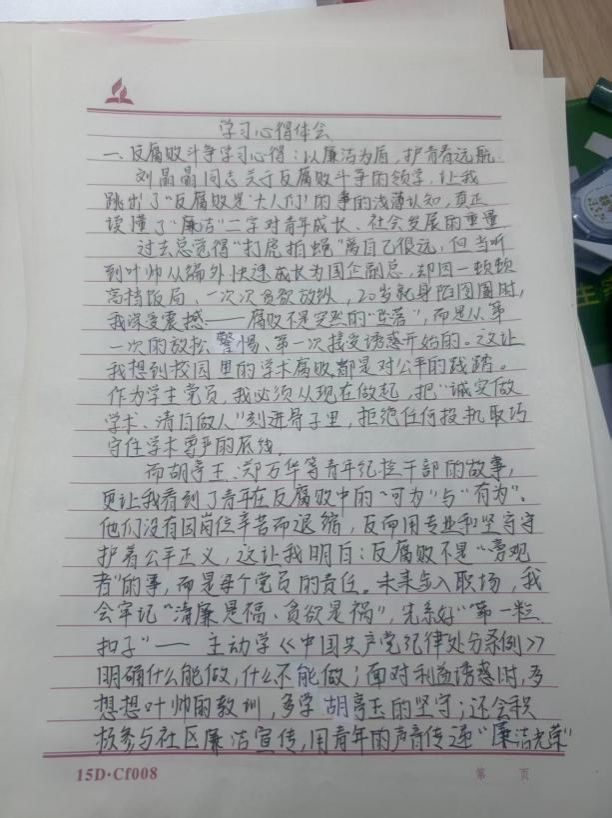 学习心得体会
一、反腐败斗争学习心得：以廉洁为盾，护青春远航
刘晶晶同志关于反腐败斗争的领学，让我
跳出了“反腐败是‘大人们’的事的浅薄认知，真正
读懂了“廉洁”二字对青年成长、社会发展的重量
过去总觉得“打虎拍蝇”离自己很远，但当听
到叶帅从编外快速成长为国企副总，却因一顿顿
高档饭局、一次次贪欲放纵，20岁就身陷囹圄时，
我深受震撼——腐败不是突然的“坠落”，而是从第
一次的放松警惕、第一次接受诱惑开始的。这让
我想到校园里的学术腐败都是对公平的践踏。
作为学生党员，我必须从现在做起，把“诚实做
学术、清白做人”刻进骨子里，拒绝任何投机取巧
守住学术尊严的底线。
而胡亭玉、郑万华等青年纪检干部的故事，
更让我看到了青年在反腐败中的“可为”与“有为”。
他们没有因岗位辛苦而退缩，反而用专业和坚守守
护着公平正义，这让我明白：反腐败不是“旁观
者”的事，而是每个党员的责任。未来步入职场，我
会牢记“清廉是福、贪欲是祸”，先系好“第一粒
扣子”——主动学《中国共产党纪律处分条例》
明确什么能做，什么不能做；面对利益诱惑时，多
想想叶帅的教训，多学胡亭玉的坚守；还会积
极参与社区廉洁宣传，用青年的声音传递“廉洁光荣”
15D·Cf008
第 页